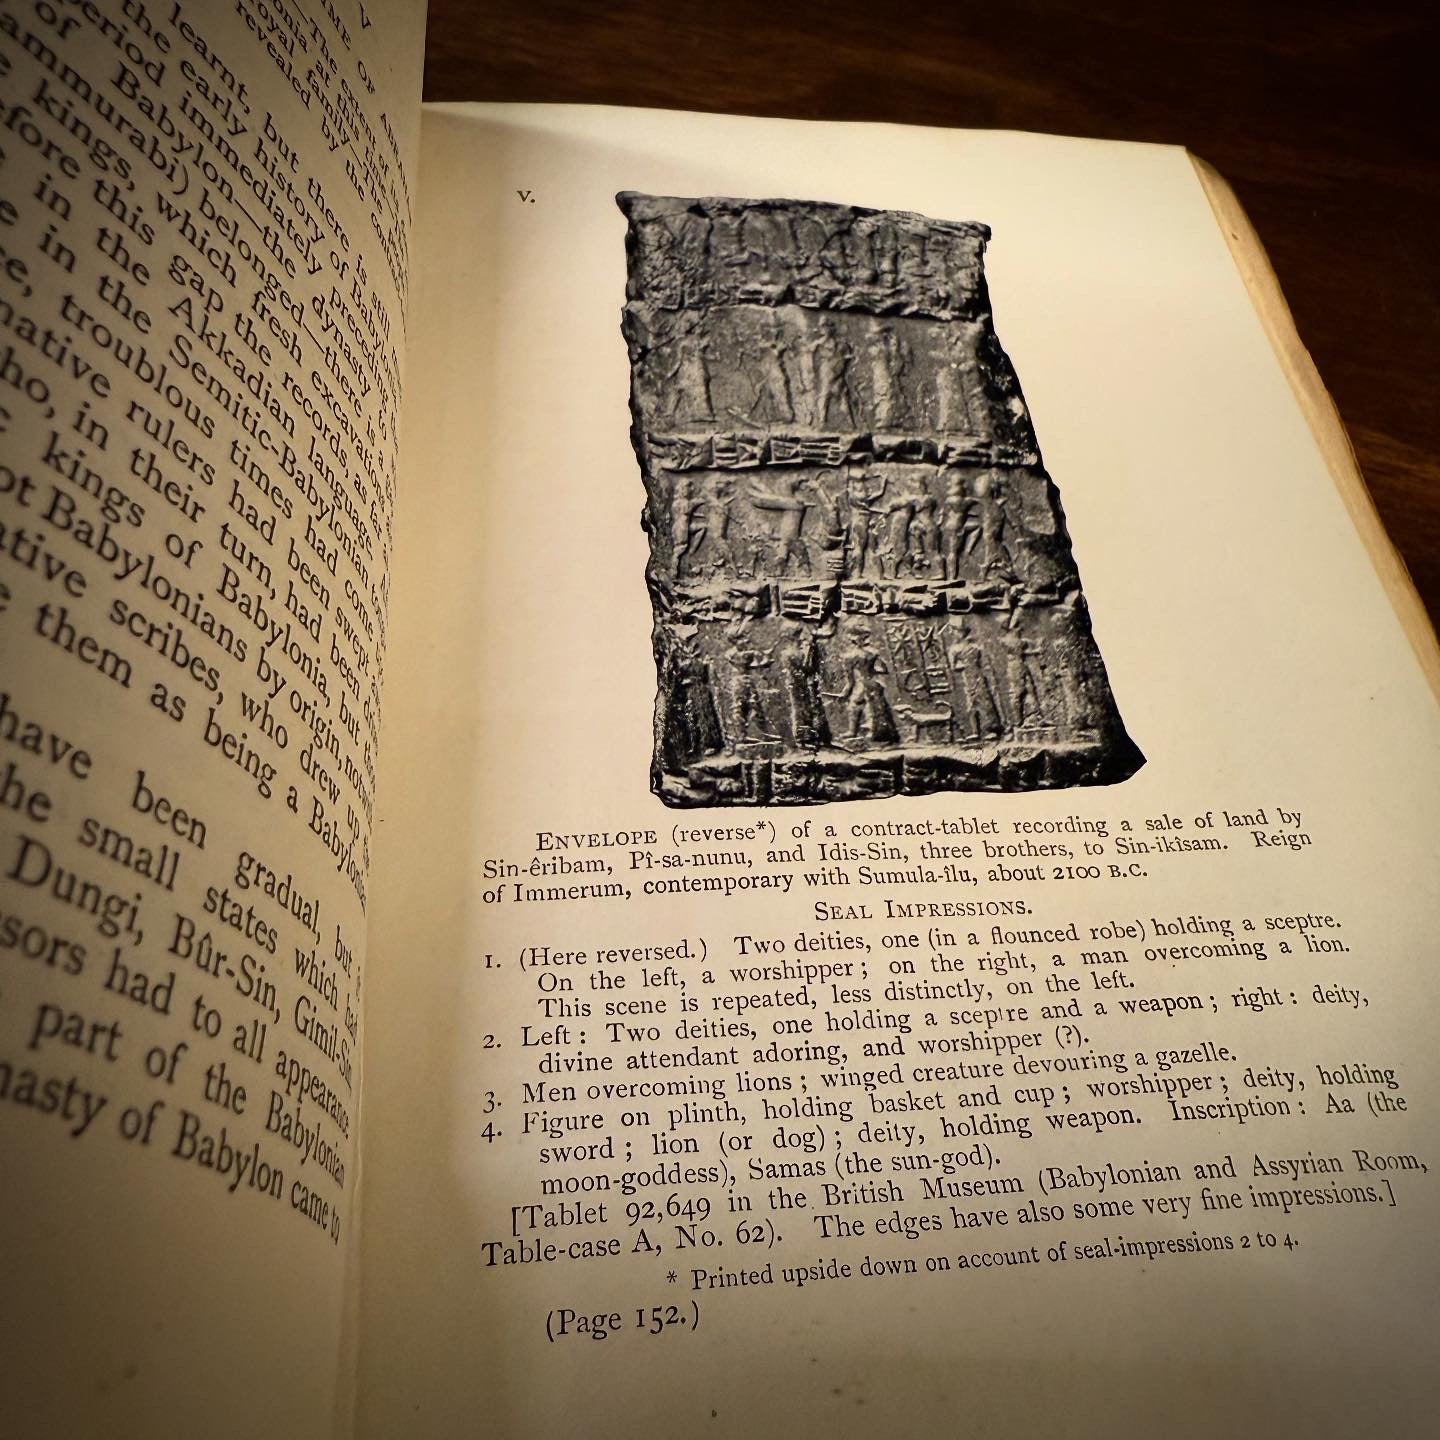 V
OF
The extent of
at this
royal family—The
revealed by the
learnt, but there is still
the early history of Babylonia
period immediately preceding
of Babylon—the dynasty to
ammurabi) belonged—there is a
kings, which fresh excavations
efore this gap the records, as far
in the Akkadian language
in the Semitic-Babylonian
troublous times had come
native rulers had been swept
ho, in their turn, had been
kings of Babylonia, but
ot Babylonians by origin,
ative scribes, who drew up
them as being a Babylonian
have been gradual, but
he small states which had
Dungi, Bûr-Sin, Gimil-Sin
sors had to all appearance
part of the Babylonian
nasty of Babylon came to
V.
ENVELOPE (reverse*) of a contract-tablet recording a sale of land by
Sin-êribam, Pî-sa-nunu, and Idis-Sin, three brothers, to Sin-ikîsam. Reign
of Immerum, contemporary with Sumula-îlu, about 2100 B.C.
SEAL IMPRESSIONS.
1. (Here reversed.) Two deities, one (in a flounced robe) holding a sceptre.
On the left, a worshipper; on the right, a man overcoming a lion.
This scene is repeated, less distinctly, on the left.
2. Left: Two deities, one holding a sceptre and a weapon; right: deity,
divine attendant adoring, and worshipper (?).
3. Men overcoming lions; winged creature devouring a gazelle.
4. Figure on plinth, holding basket and cup; worshipper; deity, holding
sword; lion (or dog); deity, holding weapon. Inscription: Aa (the
moon-goddess), Samas (the sun-god).
[Tablet 92,649 in the British Museum (Babylonian and Assyrian Room,
Table-case A, No. 62). The edges have also some very fine impressions.]
* Printed upside down on account of seal-impressions 2 to 4.
(Page 152.)